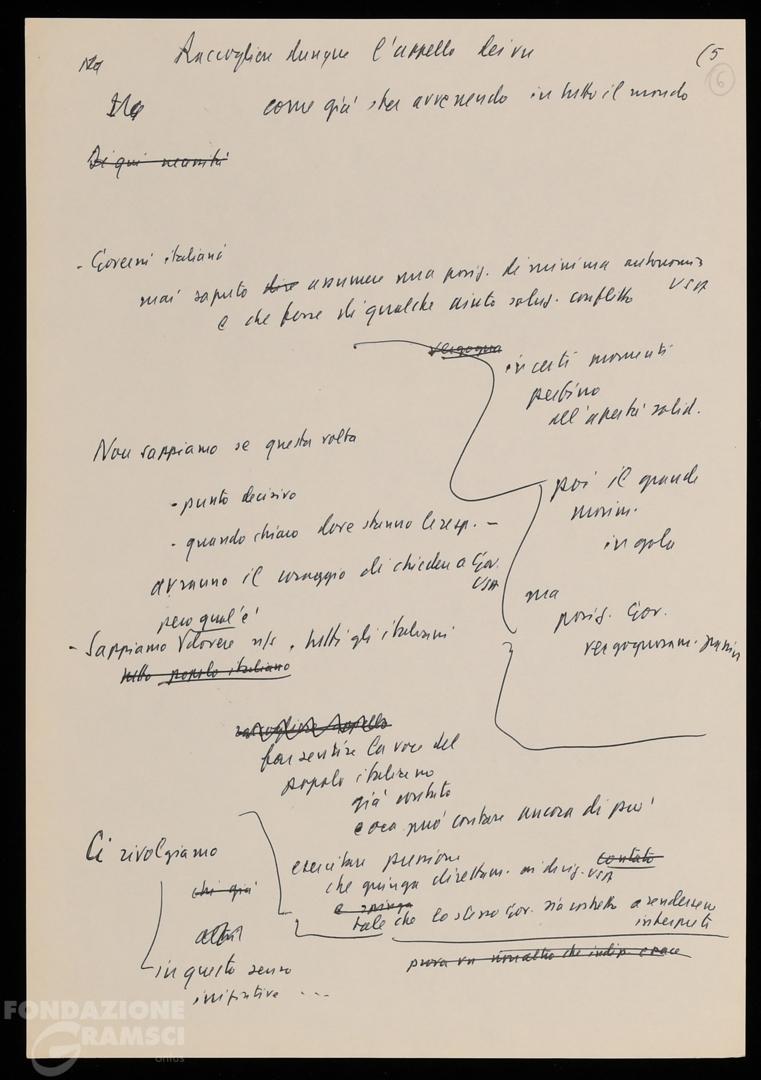 Raccogliere dunque l'appello dei vn
(5
6
Ma
come già sta avvenendo in tutto il mondo
Di qui
- Governi italiani
mai saputo dire assumere una posiz. di minima autonomia
USA
e che fosse di qualche aiuto soluz. conflitto
vergogna
in certi momenti
perfino
all'aperta solid.
Non sappiamo se questa volta
- punto decisivo
poi il grande
movim.
- quando chiaro dove stanno le resp. -
in gola
avranno il coraggio di chiedere a Gov.
USA
ma
posiz. Gov.
però qual'è
vergognosam.
- Sappiamo dovere ns. tutti gli italiani
tutto popolo italiano
raccogliere appello
far sentire la voce del
popolo italiano
già contato
e ora può contare ancora di più
Ci rivolgiamo
esercitare pressione
contato
che giunga direttam. ai dirig. USA
chi già
e spinga
tale che lo stesso Gov. sia costretto a rendersene
interprete
altri
in questo senso
iniziative ...
FONDAZIONE
GRAMSCI
onlus